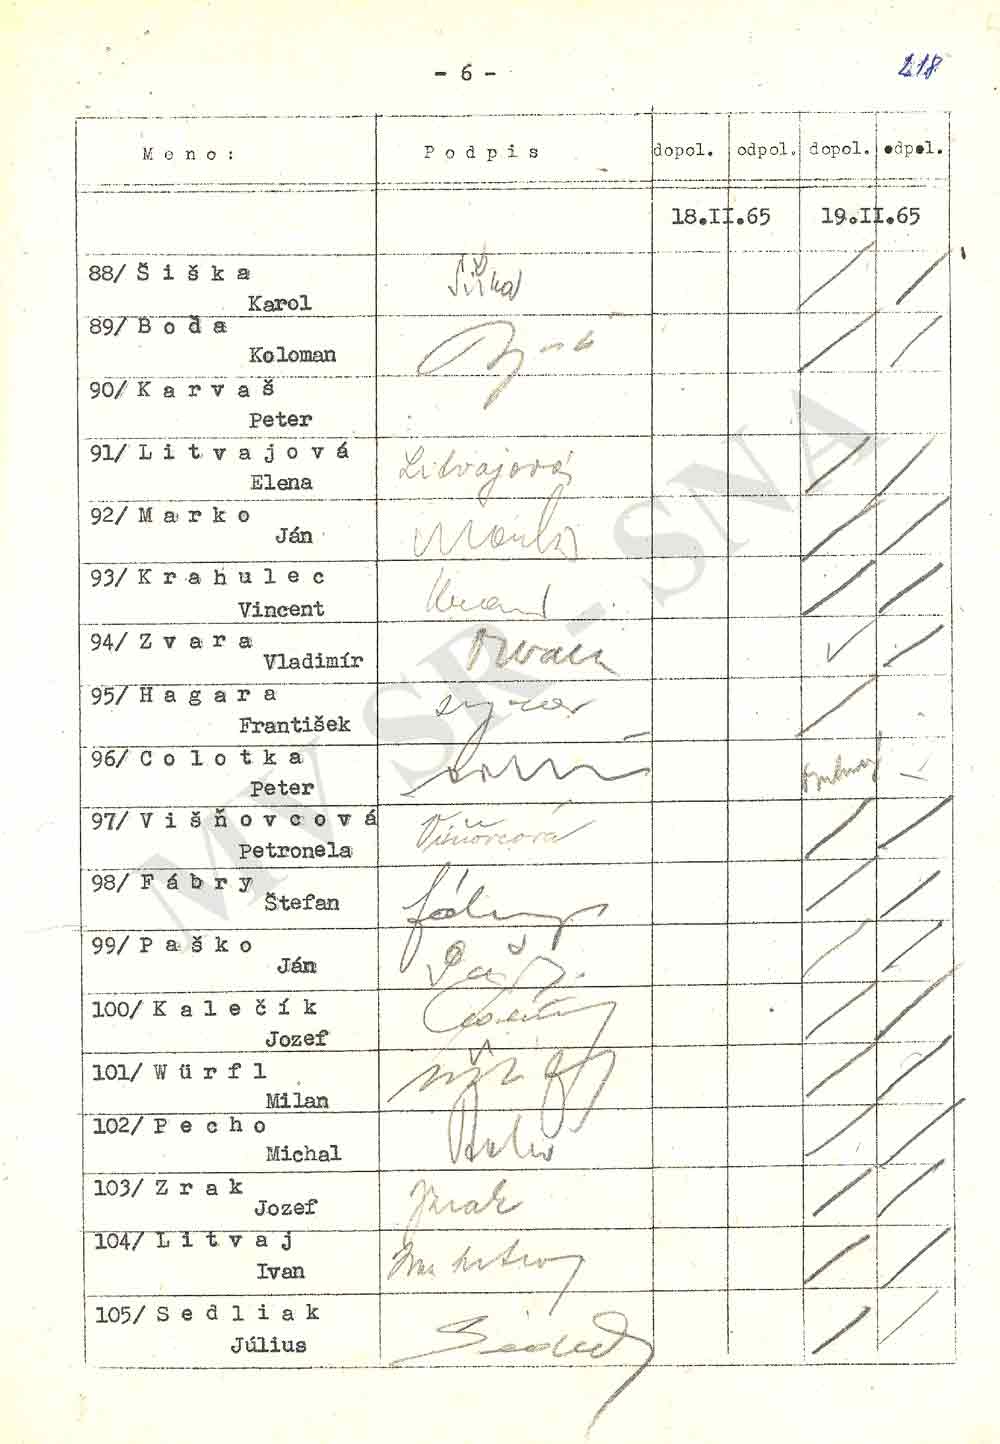 - 6 -
218
Meno: Podpis dopol. odpol. dopol. odpol.
18.II.65 19.II.65
88/ Šiška
Karol
Šiška
89/ Boďa
Koloman
90/ Karvaš
Peter
91/ Litvajová
Elena
Litvajová
92/ Marko
Ján
Marko
93/ Krahulec
Vincent
94/ Zvara
Vladimír
Zvara
95/ Hagara
František
96/ Colotka
Peter
97/ Višňovcová
Petronela
Višňovcová
98/ Fábry
Štefan
Fábry
99/ Paško
Ján
Paško
100/ Kalečík
Jozef
101/ Würfl
Milan
102/ Pecho
Michal
Pecho
103/ Zrak
Jozef
Zrak
104/ Litvaj
Ivan
Ivan Litvaj
105/ Sedliak
Július
MV SR - SNA